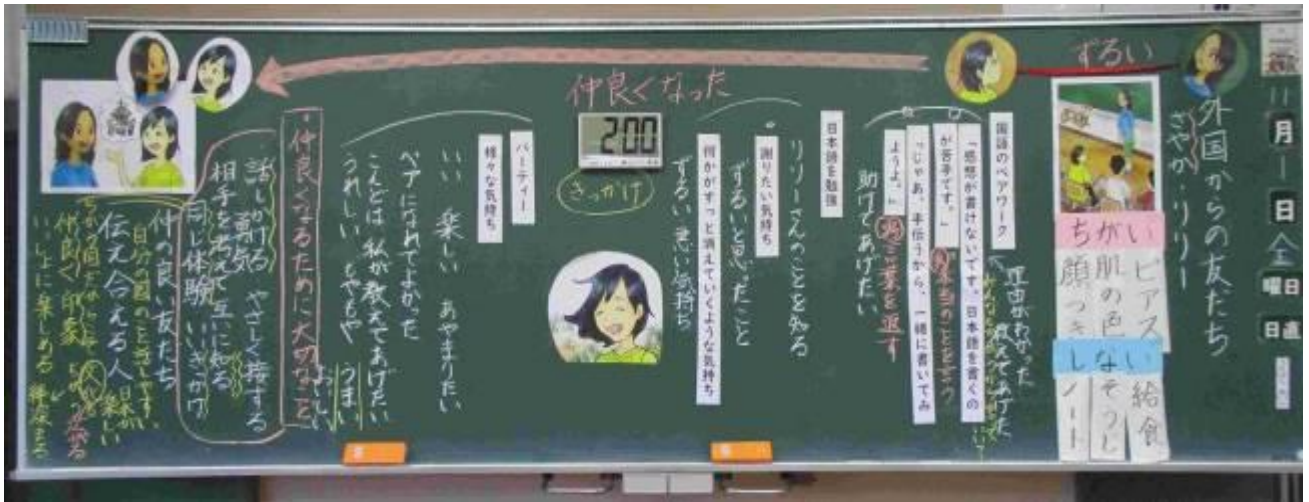 11
月
一
日
金
曜日
日直
外国からの友だち
さやか・リリー
ずるい
ちがい
ピアス
肌の色
顔つき
しない
給食
そうじ
ノート
理由がわかった
教えてあげた
国語のペアワーク
「感想が書けないです。日本語を書くの
が苦手です。」
本当のことを言う
「じゃあ、手伝うから、一緒に書いてみ
ようよ。」
言葉を返す
助けてあげたい
日本語を勉強
リリーさんのことを知る
謝りたい気持ち
ずるいと思ったこと
何かがすっと消えていくような気持ち
ずるい 悪い気持ち
仲良くなった
2:00
きっかけ
パーティー
様々な気持ち
いい 楽しい あやまりたい
ペアになれてよかった
こんどは私が教えてあげたい
うれしい もやもや
うまい
おいしい
・仲良くなるために大切なこと
話しかける勇気 やさしく接する
相手を考えて互いに知る
同じ体験 いいきっかけ
仲の良い友だち
自分の国のことを話しやすい
伝え合える人
日本が
楽しい
仲良く 印象
広がる
いっしょに楽しめる